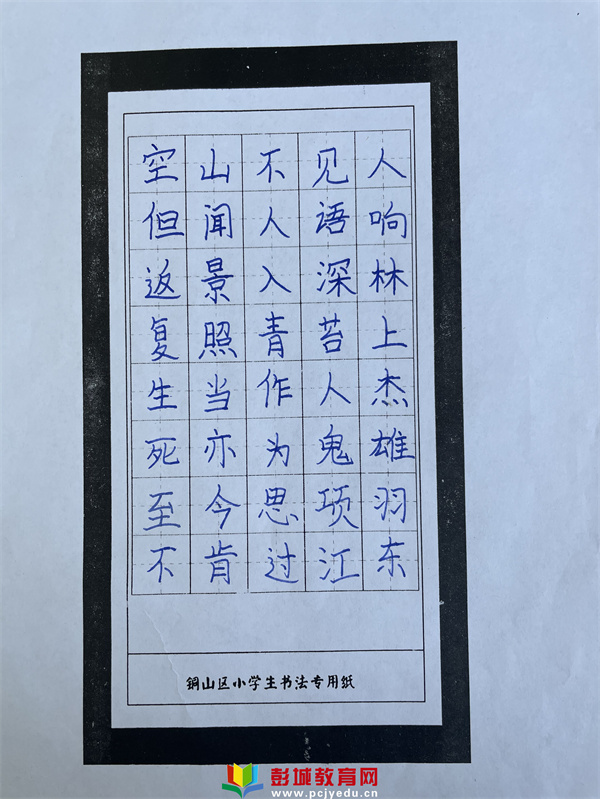 空山不见人
但闻人语响
返景入深林
复照青苔上
生当作人杰
死亦为鬼雄
至今思项羽
不肯过江东
铜山区小学生书法专用纸
彭城教育网
www.pcjyedu.cn